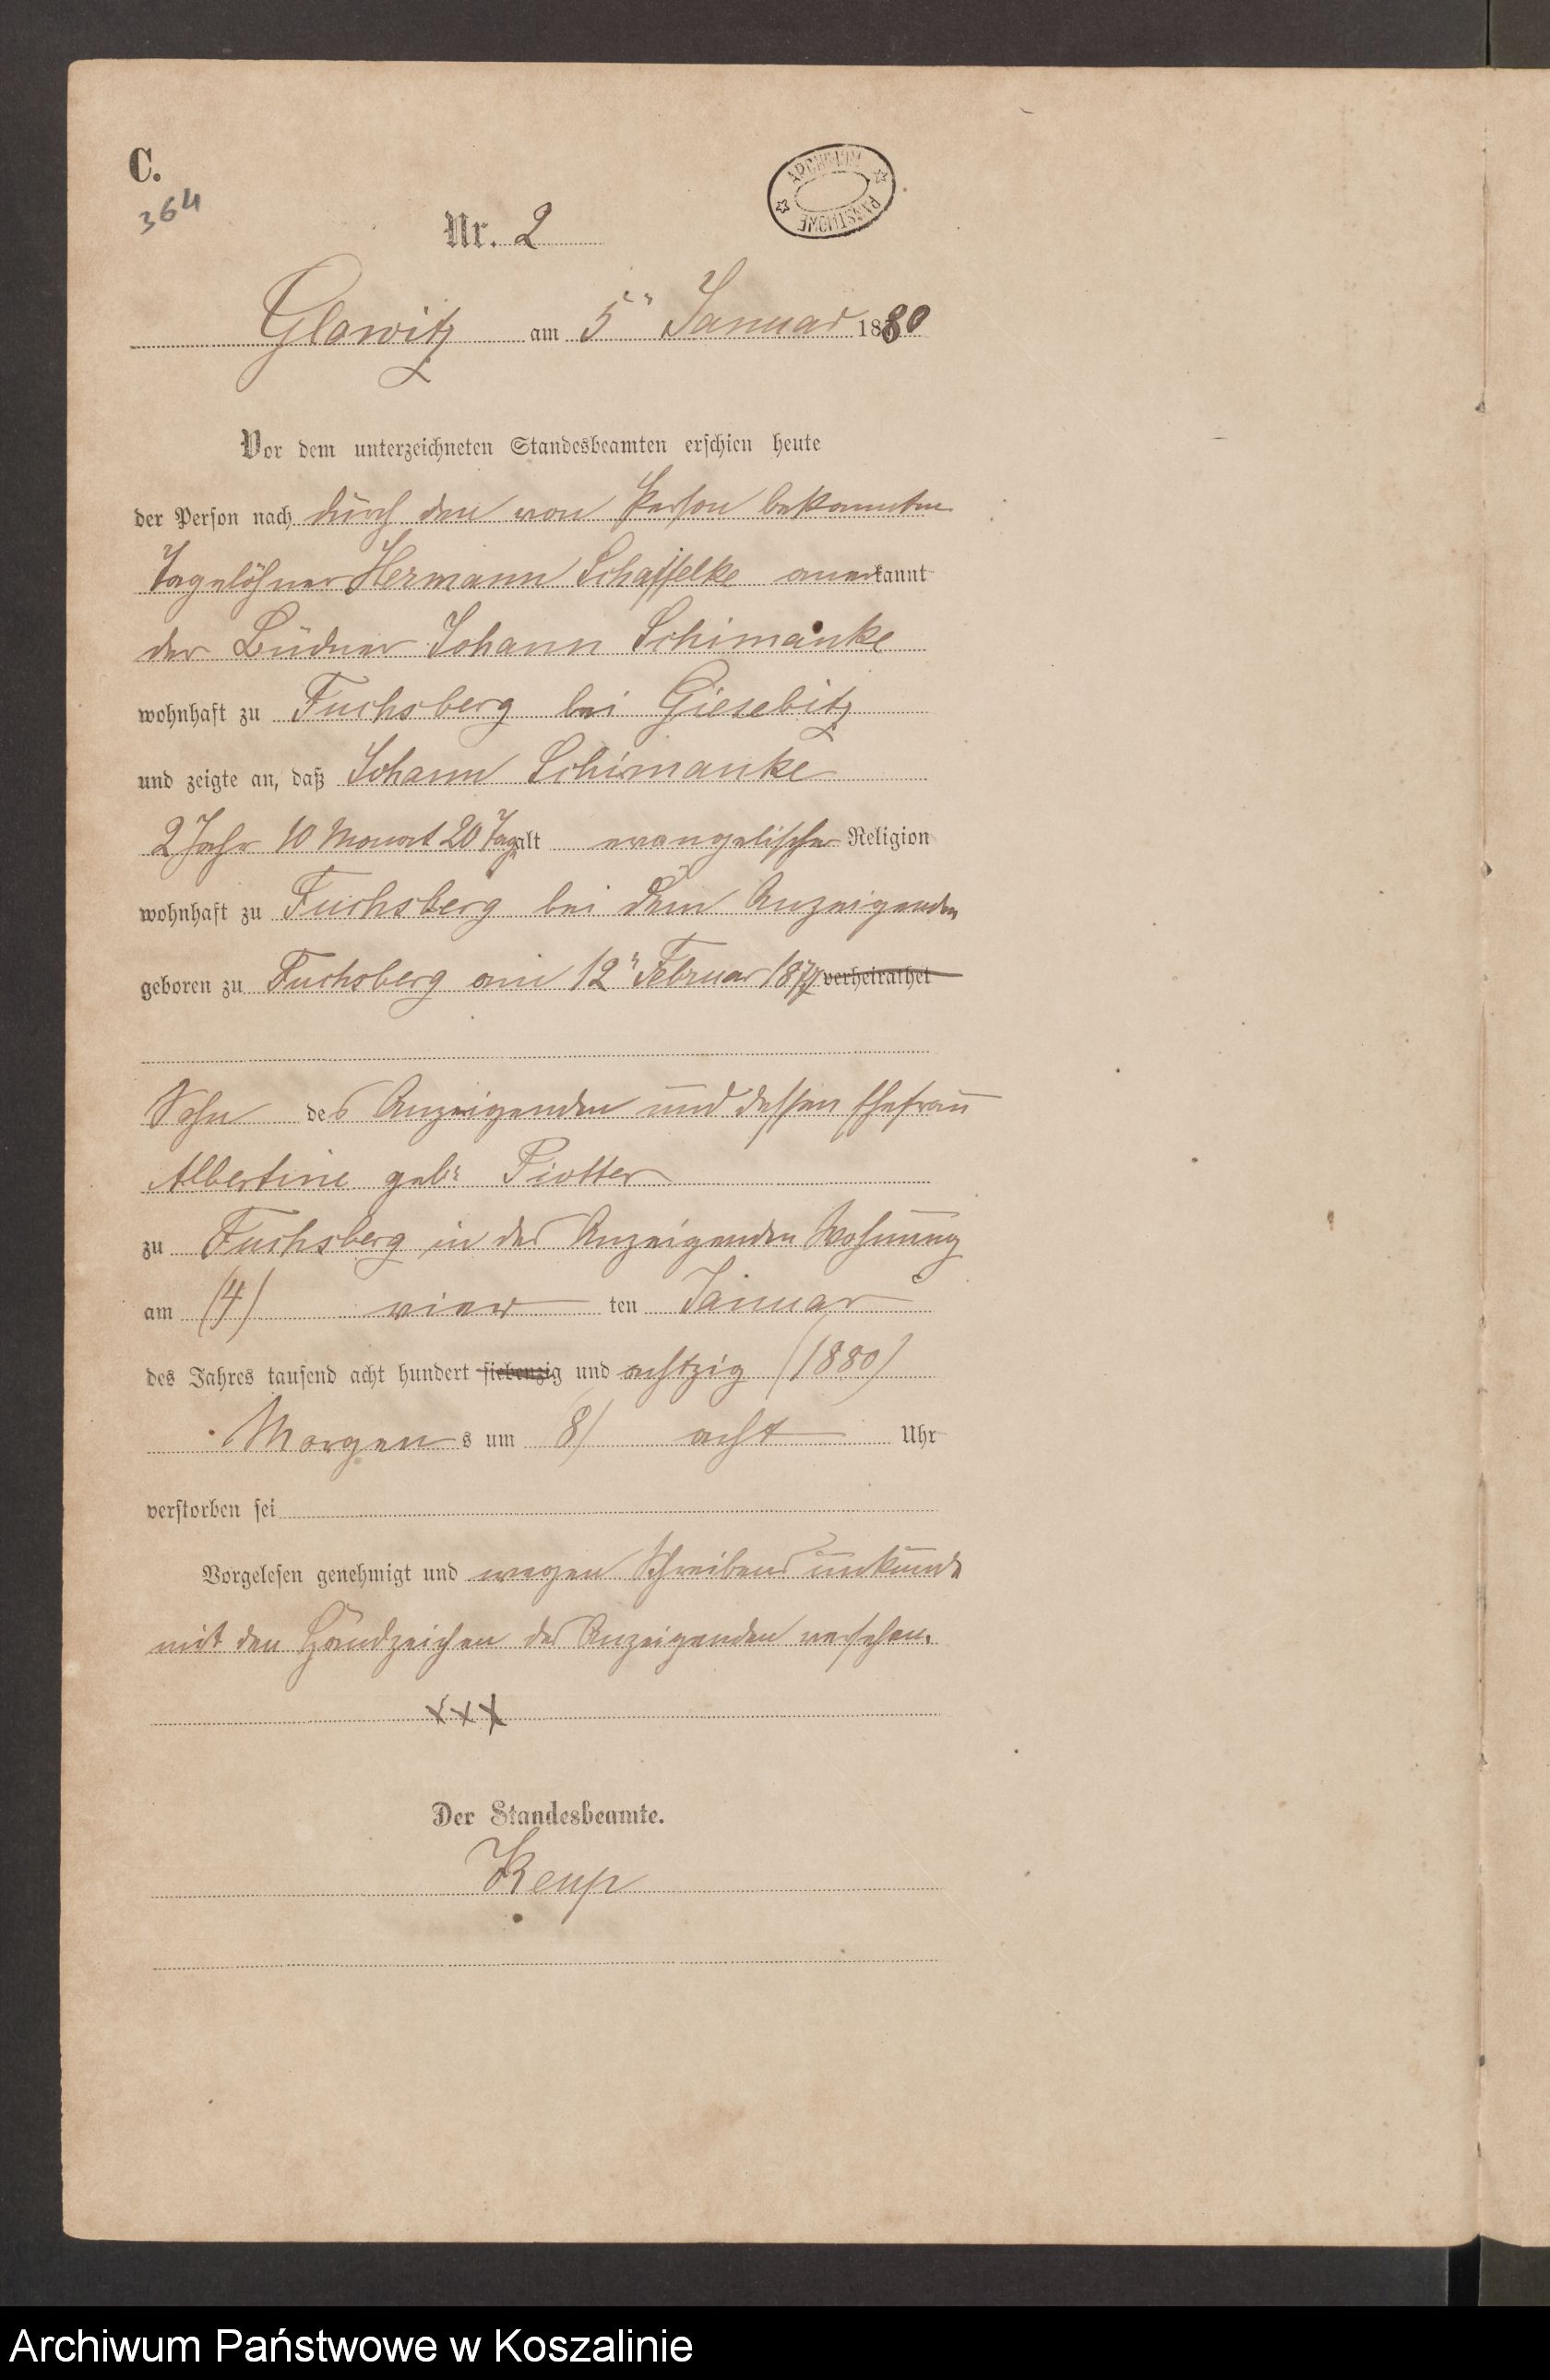 C.
364
ARCHIWUM PAŃSTWOWE
Nr. 2
Glowitz am 5ᵗ Januar 1880
Vor dem unterzeichneten Standesbeamten erschien heute
der Person nach durch den von Person bekannten
Tagelöhner Hermann Schaffelke anerkannt
der Büdner Johann Schimanke
wohnhaft zu Fuchsberg bei Giesebitz
und zeigte an, daß Johann Schimanke
2 Jahr 10 Monat 20 Tag alt evangelischer Religion
wohnhaft zu Fuchsberg bei dem Anzeigenden
geboren zu Fuchsberg am 12ᵗ Februar 1877 verheirathet
Sohn des Anzeigenden und dessen Ehefrau
Albertine geb. Piotter
zu Fuchsberg in des Anzeigenden Wohnung
am (4) vier ten Januar
des Jahres tausend acht hundert siebenzig und achtzig (1880)
Morgen s um 8/ acht Uhr
verstorben sei
Vorgelesen genehmigt und wegen Schreibens unkunde
mit den Handzeichen des Anzeigenden versehen.
xxx
Der Standesbeamte.
Keup
Archiwum Państwowe w Koszalinie